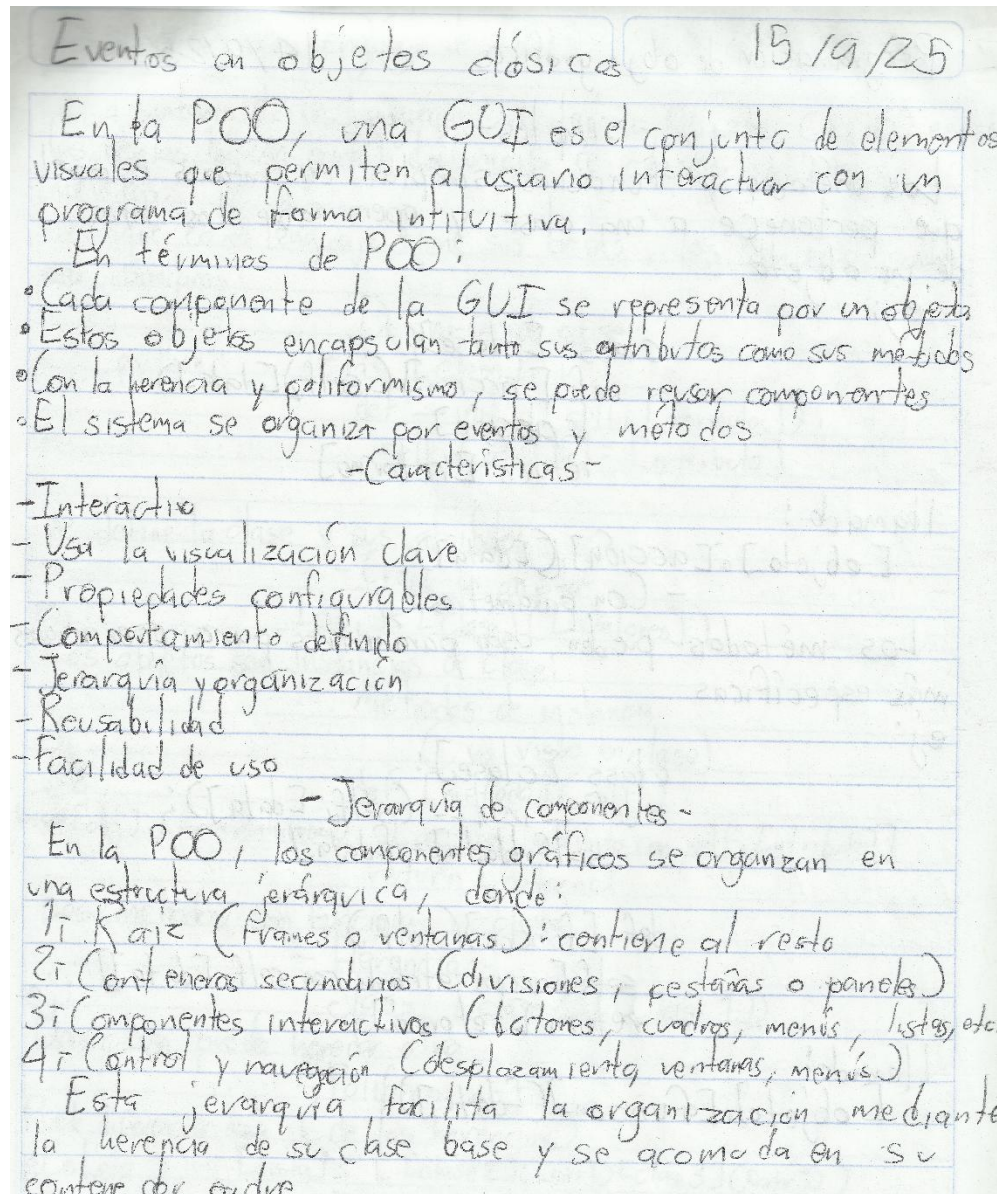 Eventos en objetos clásicos 15/9/25
En la POO, una GUI es el conjunto de elementos
visuales que permiten al usuario interactuar con un
programa de forma intituitiva.
En términos de POO:
• Cada componente de la GUI se representa por un objeto
• Estos objetos encapsulan tanto sus atributos como sus métodos
• Con la herencia y poliformismo, se puede reusar componentes
• El sistema se organiza por eventos y métodos
- Características -
- Interactivo
- Usa la visualización clave
- Propiedades configurables
- Comportamiento definido
- Jerarquía y organización
- Reusabilidad
- Facilidad de uso
- Jerarquía de componentes -
En la POO, los componentes gráficos se organizan en
una estructura jerárquica, donde:
1- Raiz (frames o ventanas): contiene al resto
2- Conteneros secundarios (divisiones, pestañas o paneles)
3- Componentes interactivos (botones, cuadros, menús, listas, etc
4- Control y navegación (desplazamiento, ventanas, menús)
Esta jerarquía facilita la organización mediante
la herencia de su clase base y se acomoda en su
contenedor padre